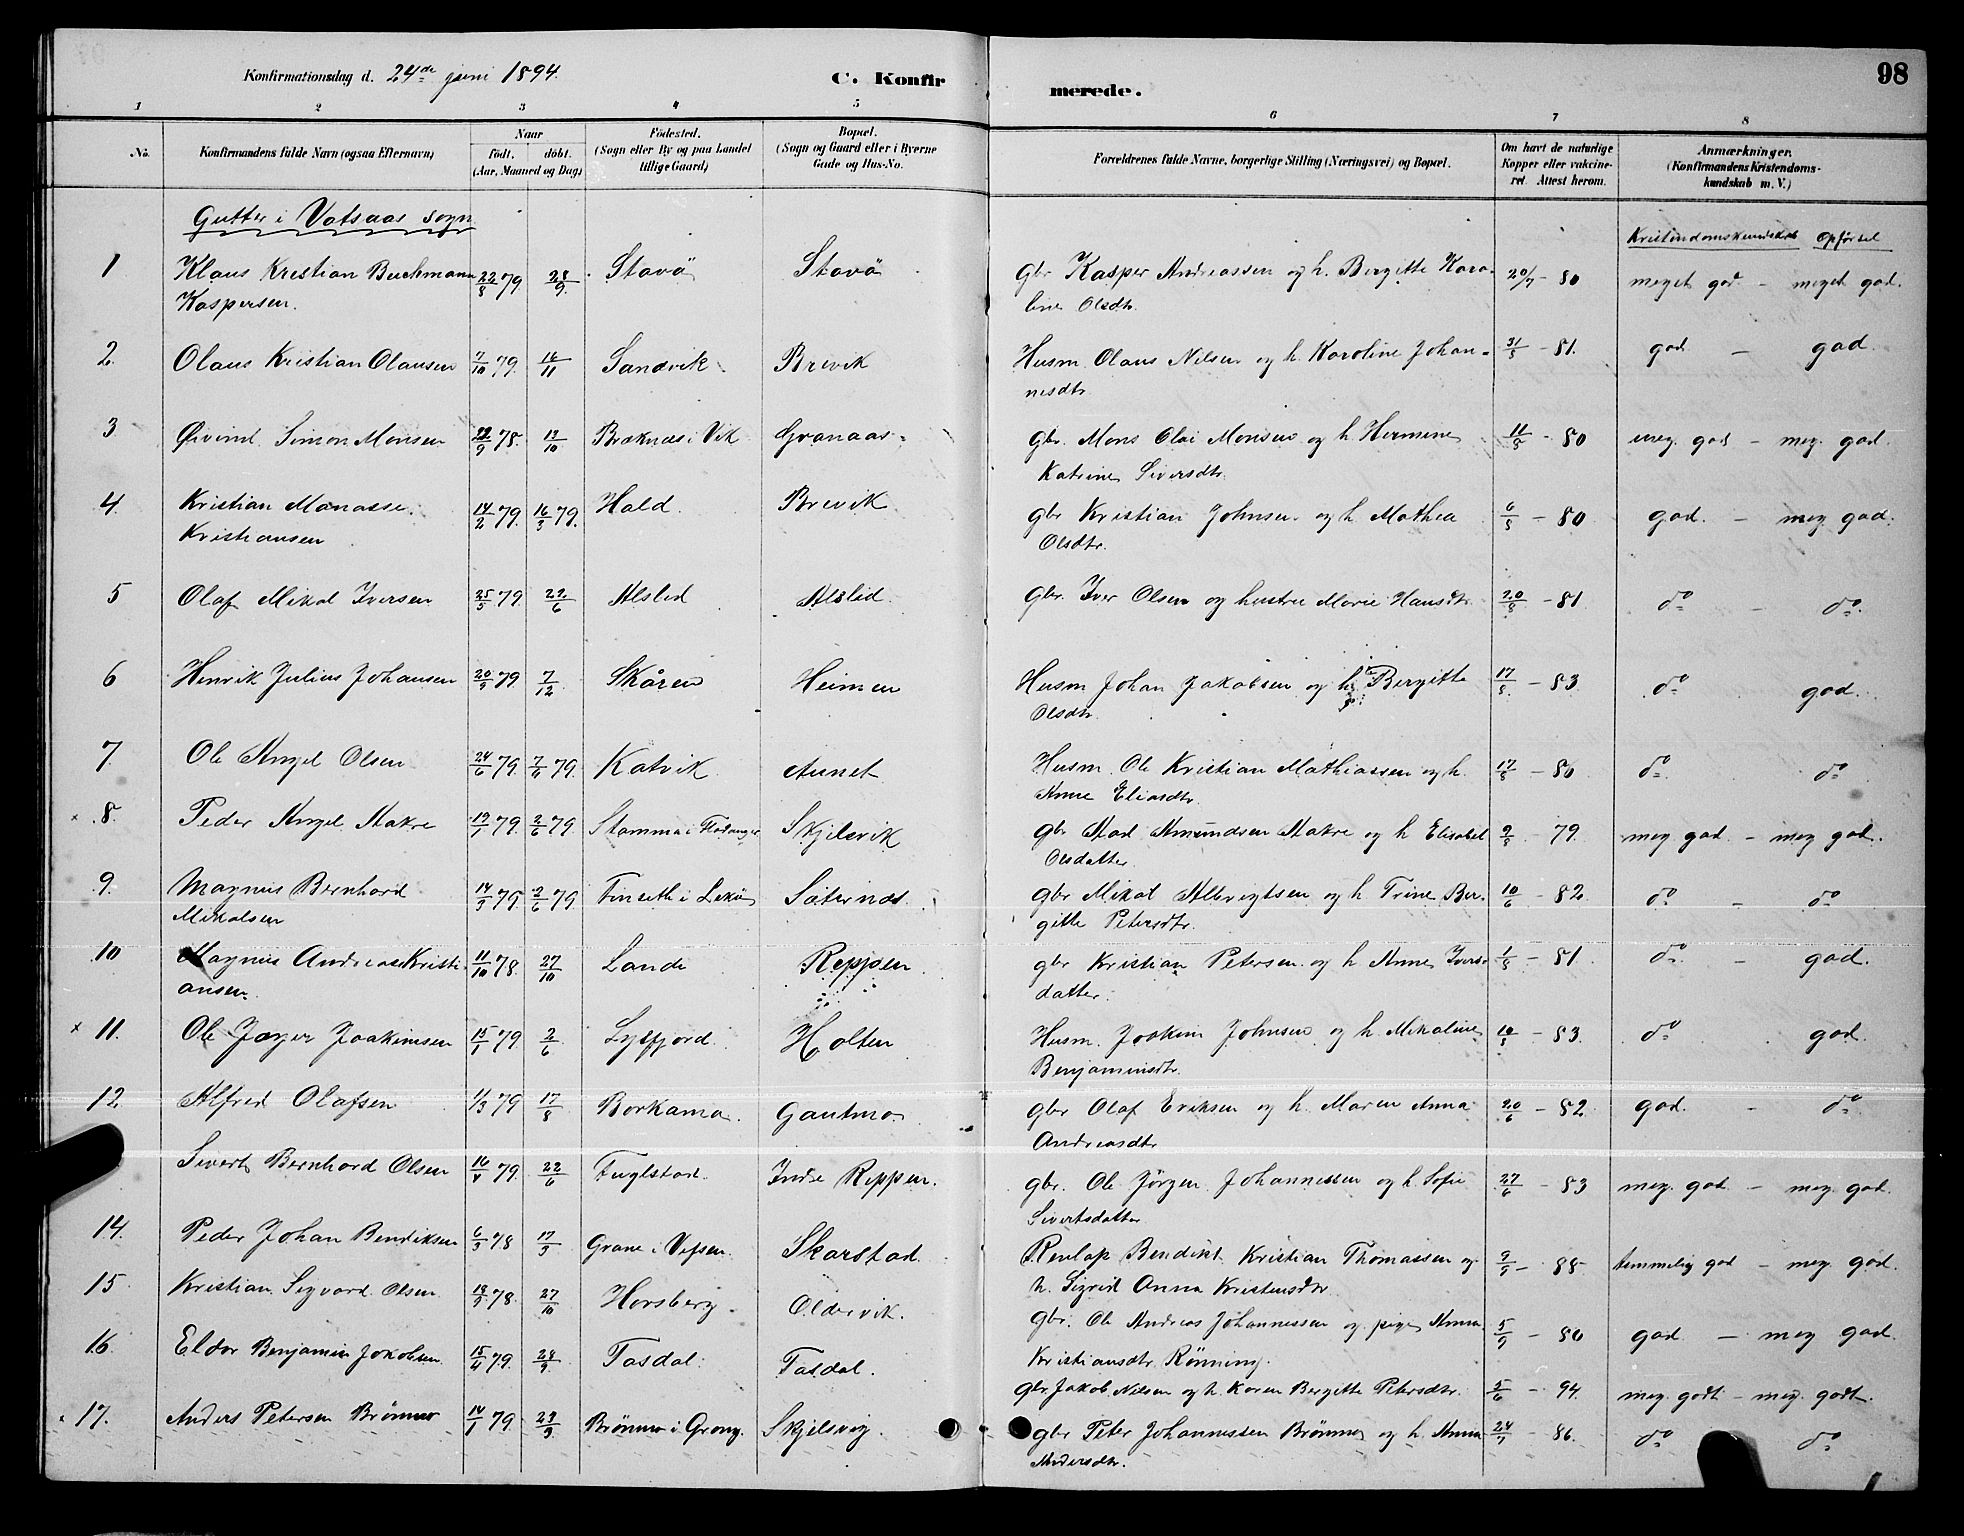 Konfirmationsdag d. 24de juni 1894. C. Konfirmerede. 98
1 2 3 4 5 6 7 8
No. Konfirmandens fulde Navn (ogsaa Efternavn) Naar født. døbt. (Aar, Maaned og Dag) Fødested. (Sogn eller By og paa Landet tillige Gaard) Bopæl. (Sogn og Gaard eller i Byerne Gade og Hus-No. Forældrenes fulde Navne, borgerlige Stilling (Næringsvei) og Bopæl. Om havt de naturlige Kopper eller vakcineret. Attest herom. Anmærkninger. (Konfirmandens Kristendomskundskab m. V.)
Gutter i Vatsaas sogn Kristendomskundskab Opførsel
1 Klaus Kristian Buchmann 22/8 79. 28/9 Stavö Stavö gbr Kasper Andreassen og h. Bergitte Karo- 20/7 - 80 meget god - meget god.
Kaspersen. line Olsdtr.
2. Olaus Kristian Olausen 7/10 79. 16/11 Sandvik Brevik Husm Olaus Nilsen og h. Karoline Johan- 31/5 - 81. god - god.
nesdtr.
3 Øivind Simon Monsen 22/9 78. 13/10 Braknæs i Vik Granaas gbr. Mons Olai Monsen og h. Hermine 11/5 - 80 meg. god - meg. god.
Katrine Siversdtr.
4 Kristian Manasse 14/2 79. 16/3 79. Hald. Brevik gbr Kristian Johnsen og h. Mathea 6/8 - 80 god. - meg god.
Kristiansen Olsdtr.
5 Olaf Mikal Iversen 25/5 79. 22/6 Alslid Alslid. gbr. Iver Olsen og hustru Marie Hansdtr. 20/8 - 81 do - do.
6 Henrik Julius Johansen 20/9 79 7/12 Skåren Heimen Husm Johan Jakobsen og h. Bergitte 17/8 - 83 do god.
Olsdtr.
7 Ole Angel Olsen 24/6 79. 7/9 79. Katvik Aunet Husm. Ole Kristian Mathiassen og h. 17/8 - 80 do do
Anne Eliasdtr.
x 8. Peder Angel Aakre 19/1 79. 2/6 79. Stamma i Fladanger Skjelsvik gbr Aad Amundsen Aakre og h Elisabet 9/8 - 79. meg god - meg god.
Olsdatter.
9. Magnus Bernhard 14/3 79 2/6 79 Finseth i Lekö Säternæs. gbr Mikal Albregtsen og h Trine Ber- 10/6 - 82. do - do
Mikalsen gitte Petersdtr.
10 Magnus Andreas Kristi- 11/10 78. 27/10 Lande Reppen gbr Kristian Petersen og h Anne Ivers- 1/8 - 81 do. - god.
ansen. datter.
x 11. Ole Jæger Joakimsen 15/1 79. 2/6 Lysfjord. Holten Husm. Joakim Johnsen og h. Mikaline 10/8 - 83. do god.
Benjaminsdtr.
12. Alfred Olafsen 1/3 79 17/8 Borkamo. Gautmo gbr Olaf Eriksen og h. Maren Anna 20/6 - 82. god. - do
Andreasdtr
Sivert Bernhard Olsen 16/4 79. 22/6 Fuglstad. Indre Reppen. gbr. Ole Jørgen Johannessen og h. Sofie 27/6 - 83 meg. god - meg. god.
Sivertsdatter
14. Peder Johan Bendiksen 6/3 78 17/3 Grane i Vefsen. Skarstad. Renlap Bendikt Kristian Thomassen og 9/9 - 88 temmelig god - meg. god.
h. Sigrid Anna Kristensdtr.
15 Kristian Sigvard Olsen 13/9 78. 27/10 Horsberg. Oldervik. gbr. Ole Andreas Johannessen og pige Anna 5/9 - 80 god - meg god.
16. Eldor Benjamin Jakobsen 15/4 79. 28/9 Tasdal. Tasdal. Kristiansdtr. Rönning.
gbr. Jakob Nilsen og h. Karen Bergitte Petersdtr. 5/6 - 94. meg. godt - meg. godt.
x 17. Anders Petersen Brønmo 14/1 79. 23/3 Brønmo i Grong. Skjelsvig. gbr Peter Johannessen Brønmo og h. Anna 24/9 - 86. do do
Andersdtr.